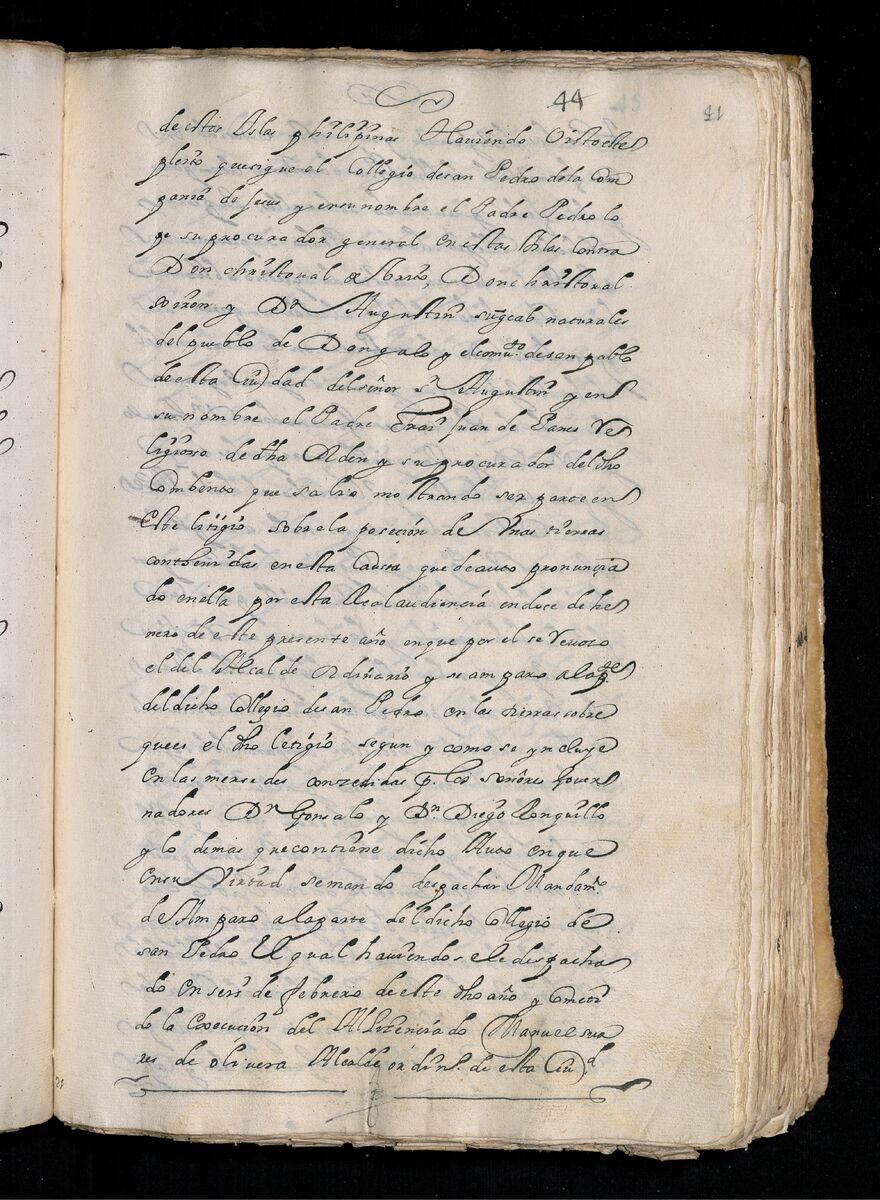 44
41
de estas Yslas philipinas Haviendo Visto este
pleito que sigue el Collegio de san Pedro de la Com
pania de Jesus y en su nombre el Padre Pedro lo
pe su procurador general en estas Yslas Contra
Don christoval de Brito, Don christoval
soiron y Dn Augustin naturales
del pueblo de Dongalo y el comto de san pablo
de esta Ciudad del señor sn Augustin y en
su nombre el Padre Frai Juan de Panes Re
ligioso de dha Orden y su procurador del dho
Combento que salio mostrando ser parte en
este litigio sobre la poseción de Unas tierras
conthenidas en esta Causa que de auto pronuncia
do en ella por esta Real audiencia en doce de he
nero de este presente año en que por el se Revoco
el del Alcalde Ordinario y se amparo a la pte
del dicho Collegio de san Pedro en las tierras sobre
que es el dho Letigio segun y como se yncluye
en las mersedes conzedidas p. los señores Gover
nadores Dn Gonsalo y Dn. Diego Ronquillo
y lo demas que contiene dicho Auto en que
en su Virtud se mando despachar Mandamto
de Amparo a la parte del dicho Collegio de
san Pedro El qual haviendosele despacha
do en seis de febrero de este dho año y cometi
do la Execución del Al Lizenciado Manuel sua
res de olivera Alcalde ordino. de esta Ciud